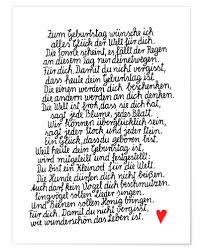 Zum Geburtstag wünsche ich
alles Glück der Welt für dich.
Die Sonne scheint, es fällt der Regen
an diesem Tag nur deinetwegen.
Für dich. Damit du nicht vergisst,
dass heute dein Geburtstag ist.
Die einen werden dich beschenken,
die andern werden an dich denken.
Die Welt ist froh, dass sie dich hat,
sagt jede Blume, jedes Blatt.
Wir können überglücklich sein,
sagt jeder Stock und jeder Stein.
Ein Glück, dass du geboren bist.
Weil heute dein Geburtstag ist,
wird mitgeteilt und festgestellt:
Du bist ein Kleinod für die Welt.
Die Hunde dürfen nicht beißen.
Auch darf kein Vogel dich beschmutzen.
singvoll sollen Lieder singen.
Und Bienen sollen Honig bringen.
für dich. Damit du nicht vergisst,
wie wunderschön das Leben ist.